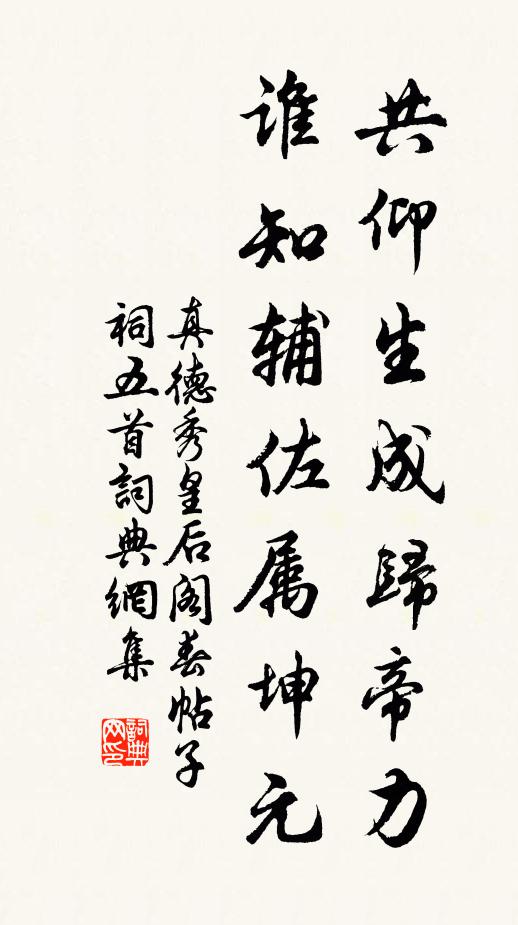 共仰生成歸帝力
谁知辅佐属坤元
真德秀皇后阁春帖子
祠五首詞典網集
詞典網印